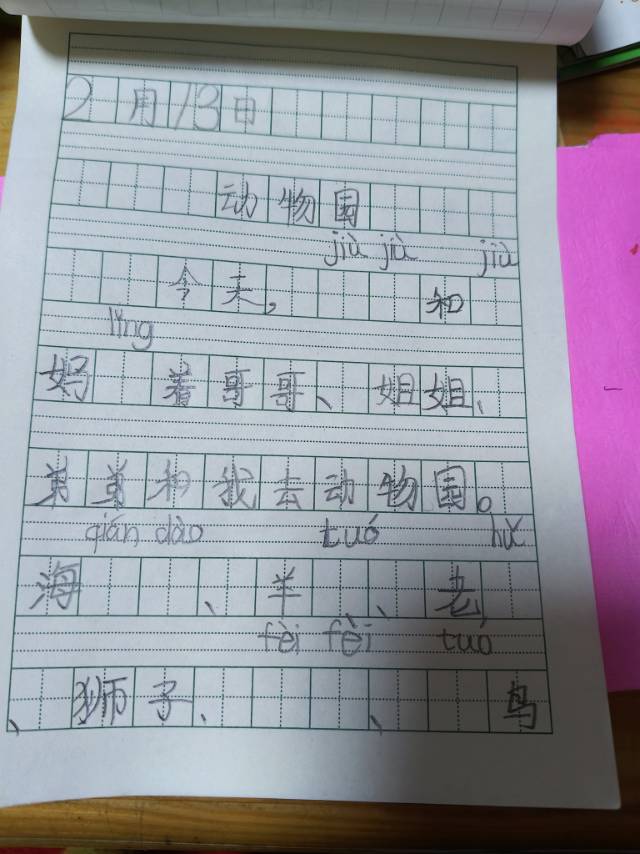 2月13日
动物园
jiù jiù jiù
今天，和
lǐng
妈着哥哥、姐姐、
弟弟和我去动物园。
qián dào tuó hǔ
海、羊、老
fèi fèi tuó
、狮子、、鸟